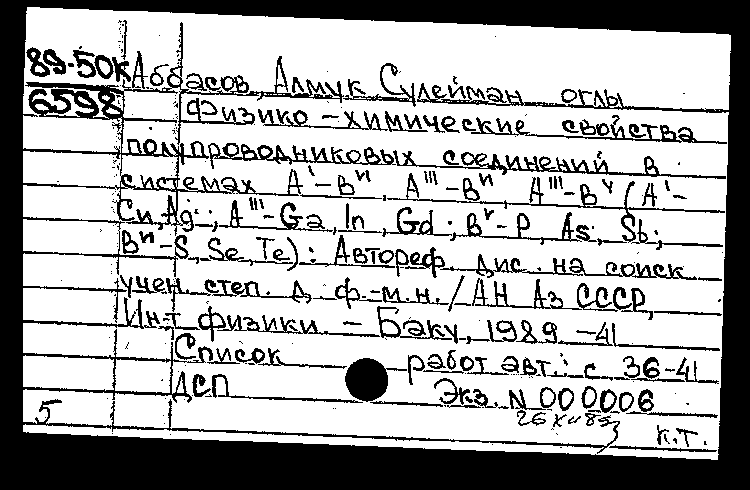 89-50к Аббасов, Алмук Сулейман оглы
6598 Физико-химические свойства
полупроводниковых соединений в
системах Aᴵ-Bⱽᴵ, Aᴵᴵᴵ-Bⱽᴵ, Aᴵᴵᴵ-Bⱽ (Aᴵ-
Cu, Ag; Aᴵᴵᴵ-Ga, In, Gd; Bⱽ-P, As, Sb;
Bⱽᴵ-S, Se, Te): Автореф. дис. на соиск.
учен. степ. д. ф.-м.н. / АН Аз ССР,
Ин-т физики. - Баку, 1989 - 41
Список работ авт.: с 36-41
ДСП Экз. N 000006
5 к.т.